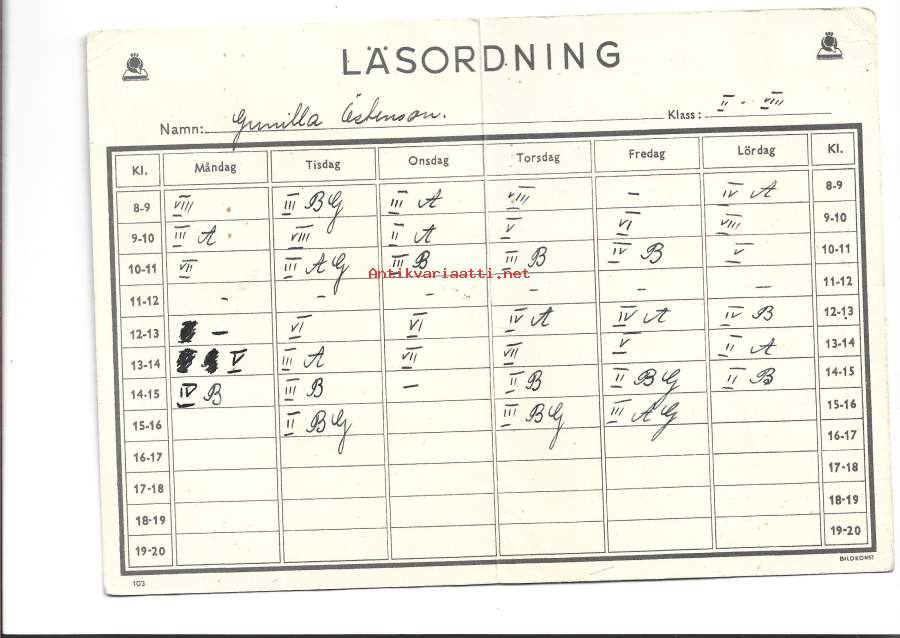 LÄSORDNING
Namn: Gunilla Klass: II - VIII
Kl. Måndag Tisdag Onsdag Torsdag Fredag Lördag Kl.
8-9 VIII III B G III A VIII – IV A 8-9
9-10 III A VIII II A V VI VIII 9-10
10-11 VII III A G III B III B IV B V 10-11
Antikvariaatti.net
11-12 – – – – – – 11-12
12-13 – VI VI IV A IV A IV B 12-13
13-14 V III A VII VII V II A 13-14
14-15 IV B III B – II B II B G II B 14-15
15-16 II B G III B G III A G 15-16
16-17 16-17
17-18 17-18
18-19 18-19
19-20 19-20
103 BILDKONST